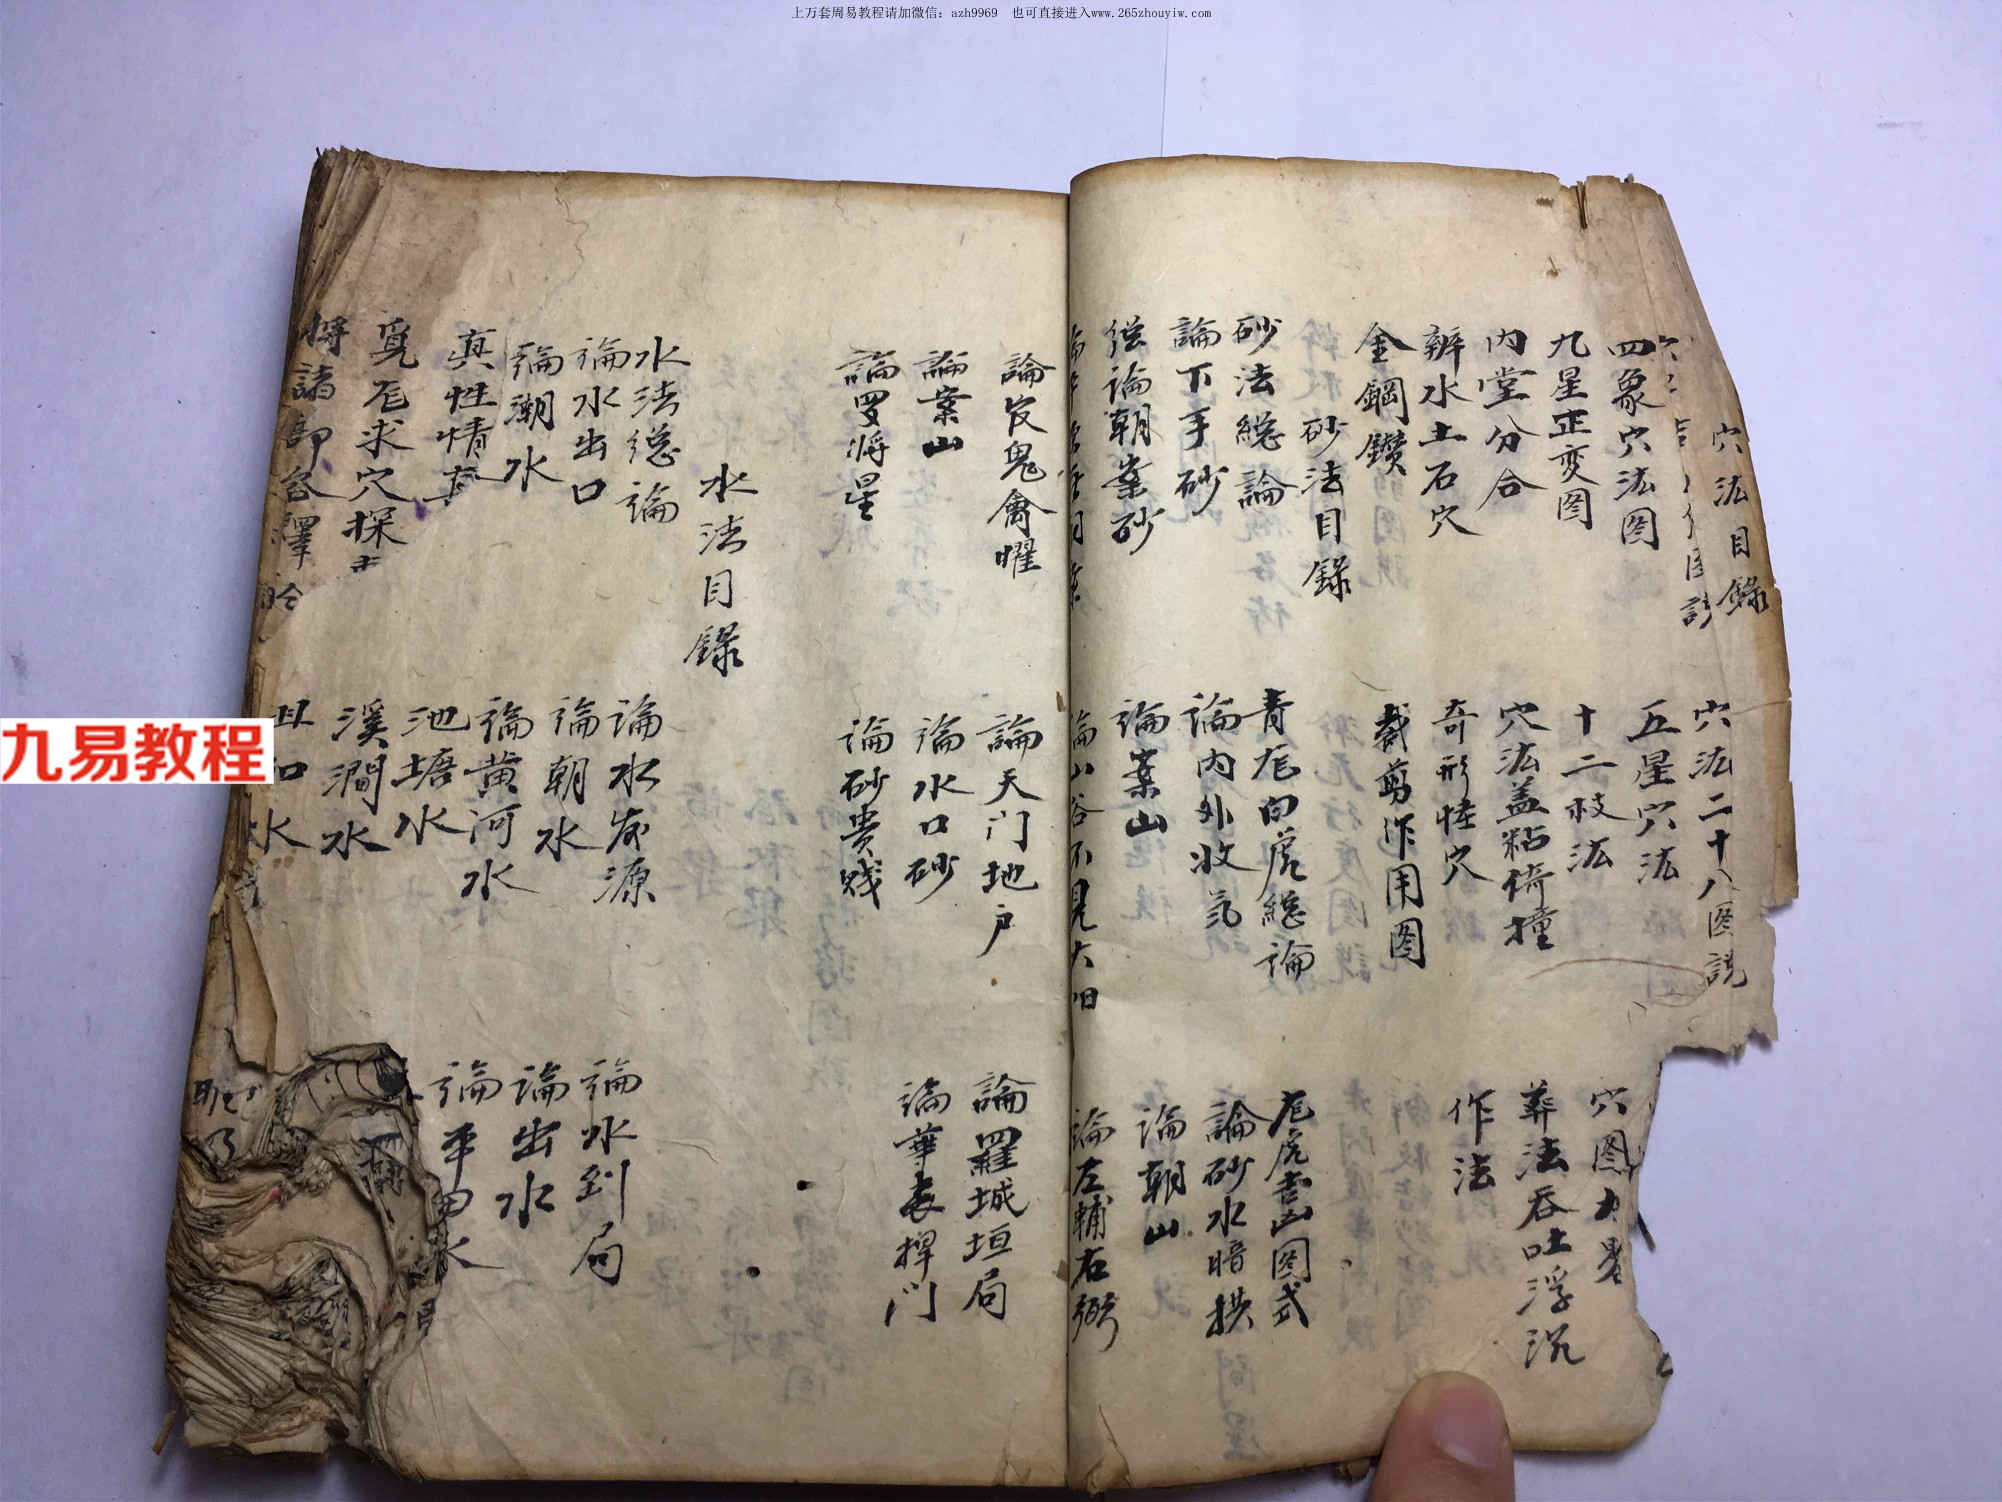 上万套周易教程请加微信：azh9969　也可直接进入www.265zhouyiw.com
九易教程
穴法目錄
穴法二十八图說
四象穴法图
五星穴法
穴图
九星正变图
十二杖法
葬法吞吐浮沉
内堂分合
穴法盖粘倚撞
辨水土石穴
奇形怪穴
作法
金鋼鑽
裁剪作用图
砂法目錄
砂法總論
青龙白虎總論
龙虎吉凶图式
論下手砂
論内外收氣
論砂水暗拱
總論朝案砂
論案山
論朝山
論左輔右弼
論官鬼禽曜
論天门地户
論羅城垣局
論案山
論水口砂
論華表捍门
論罗将星
論砂贵贱
水法目錄
水法總論
論水發源
論水到局
論水出口
論朝水
論出水
論潮水
論黄河水
論平田水
真性情
池塘水
覓龙求穴探
溪澗水
将諸部
水